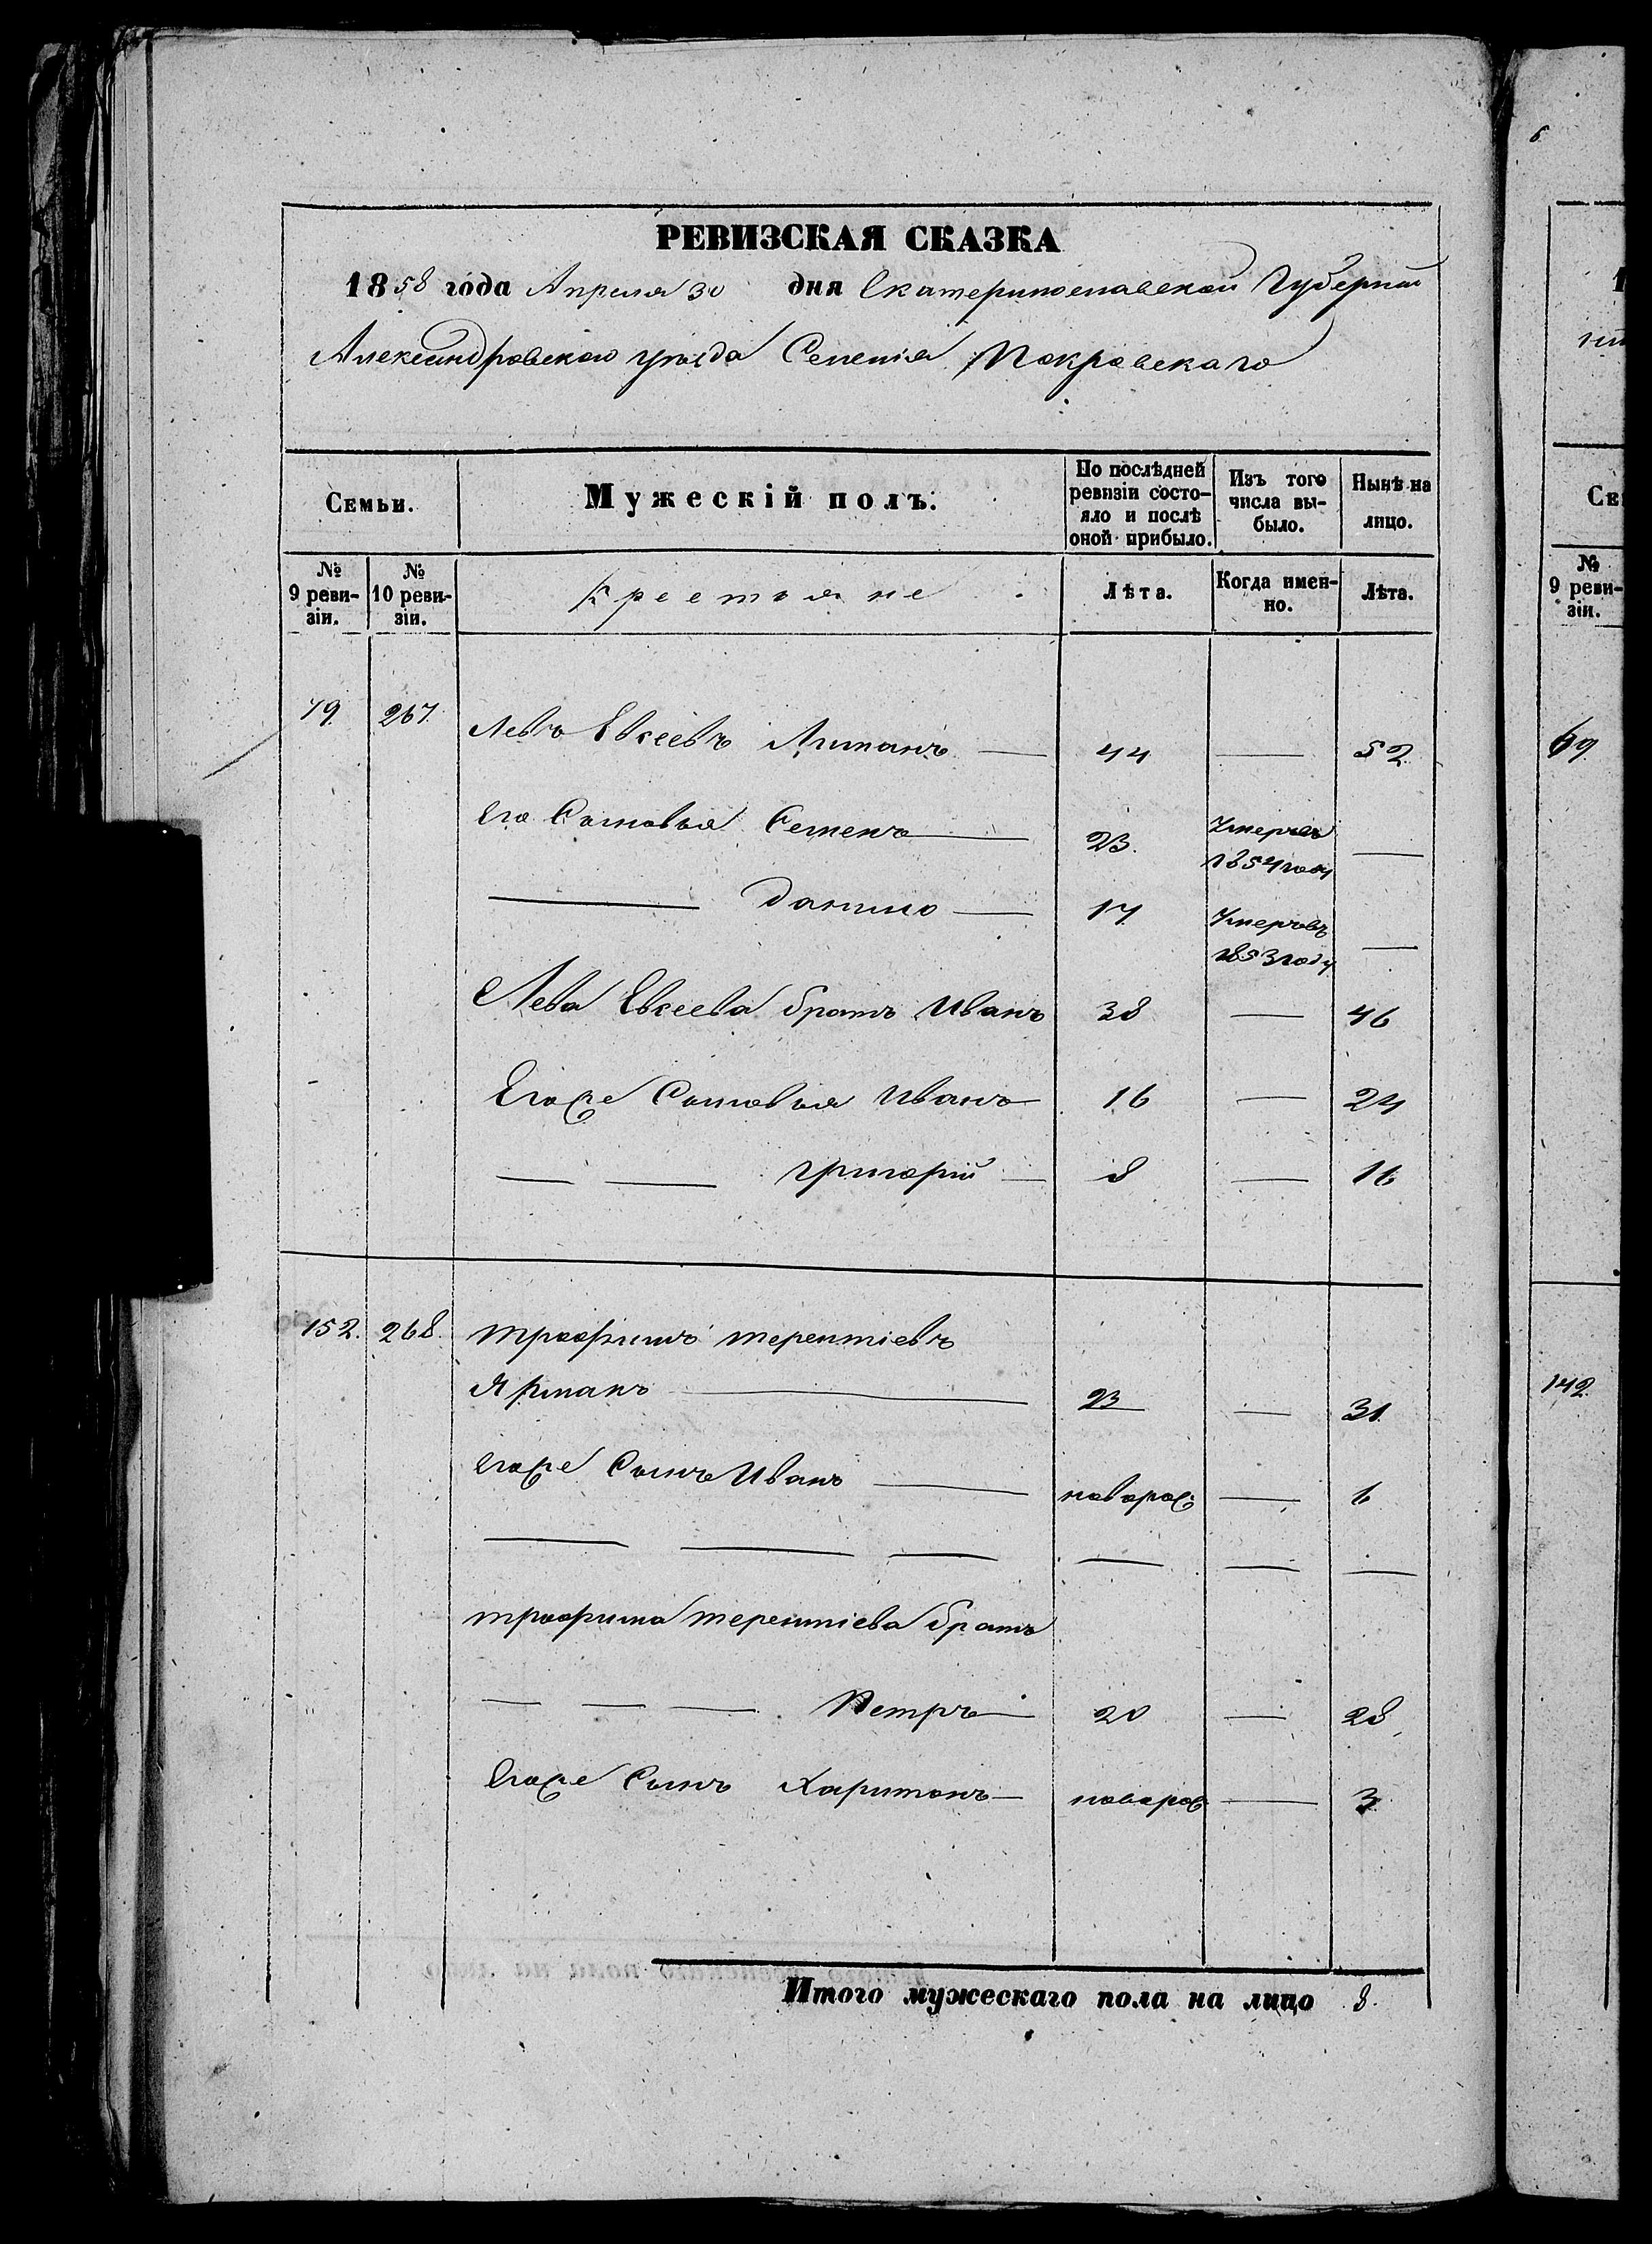 РЕВИЗСКАЯ СКАЗКА
1858 года Апреля 30 дня Екатеринославской Губернии
Александровского уезда Селенія Покровскаго
Семьи.
Мужескій полъ.
По послѣдней ревизіи состо-яло и послѣ оной прибыло.
Изъ того числа вы-было.
Нынѣ на лицо.
№ 9 реви-зіи.
№ 10 реви-зіи.
Крестьяне
Лѣта.
Когда имен-но.
Лѣта.
79. 267. Левъ Евсеевъ — 44 — 52
Его Сыновья Семенъ — 23. Умеръ в 1854 году —
— Данило — 17. Умеръ в 1853 году —
Лева Евсеева братъ Иванъ 38 — 46
Его же Сыновья Иванъ — 16 — 24
— — Григорій — 8 — 16
152. 268. Трофимъ Терентіевъ
Ярмакъ — 23 — 31.
Его же Сынъ Иванъ — новорож — 6
— — — — — —
Трофима Терентіева братъ
— — — Петръ — 20 — 28
Его же Сынъ Харитонъ — новорож — 3
Итого мужескаго пола на лицо 8.
6
1
Се
№ 9 реви-зіи.
69
142.